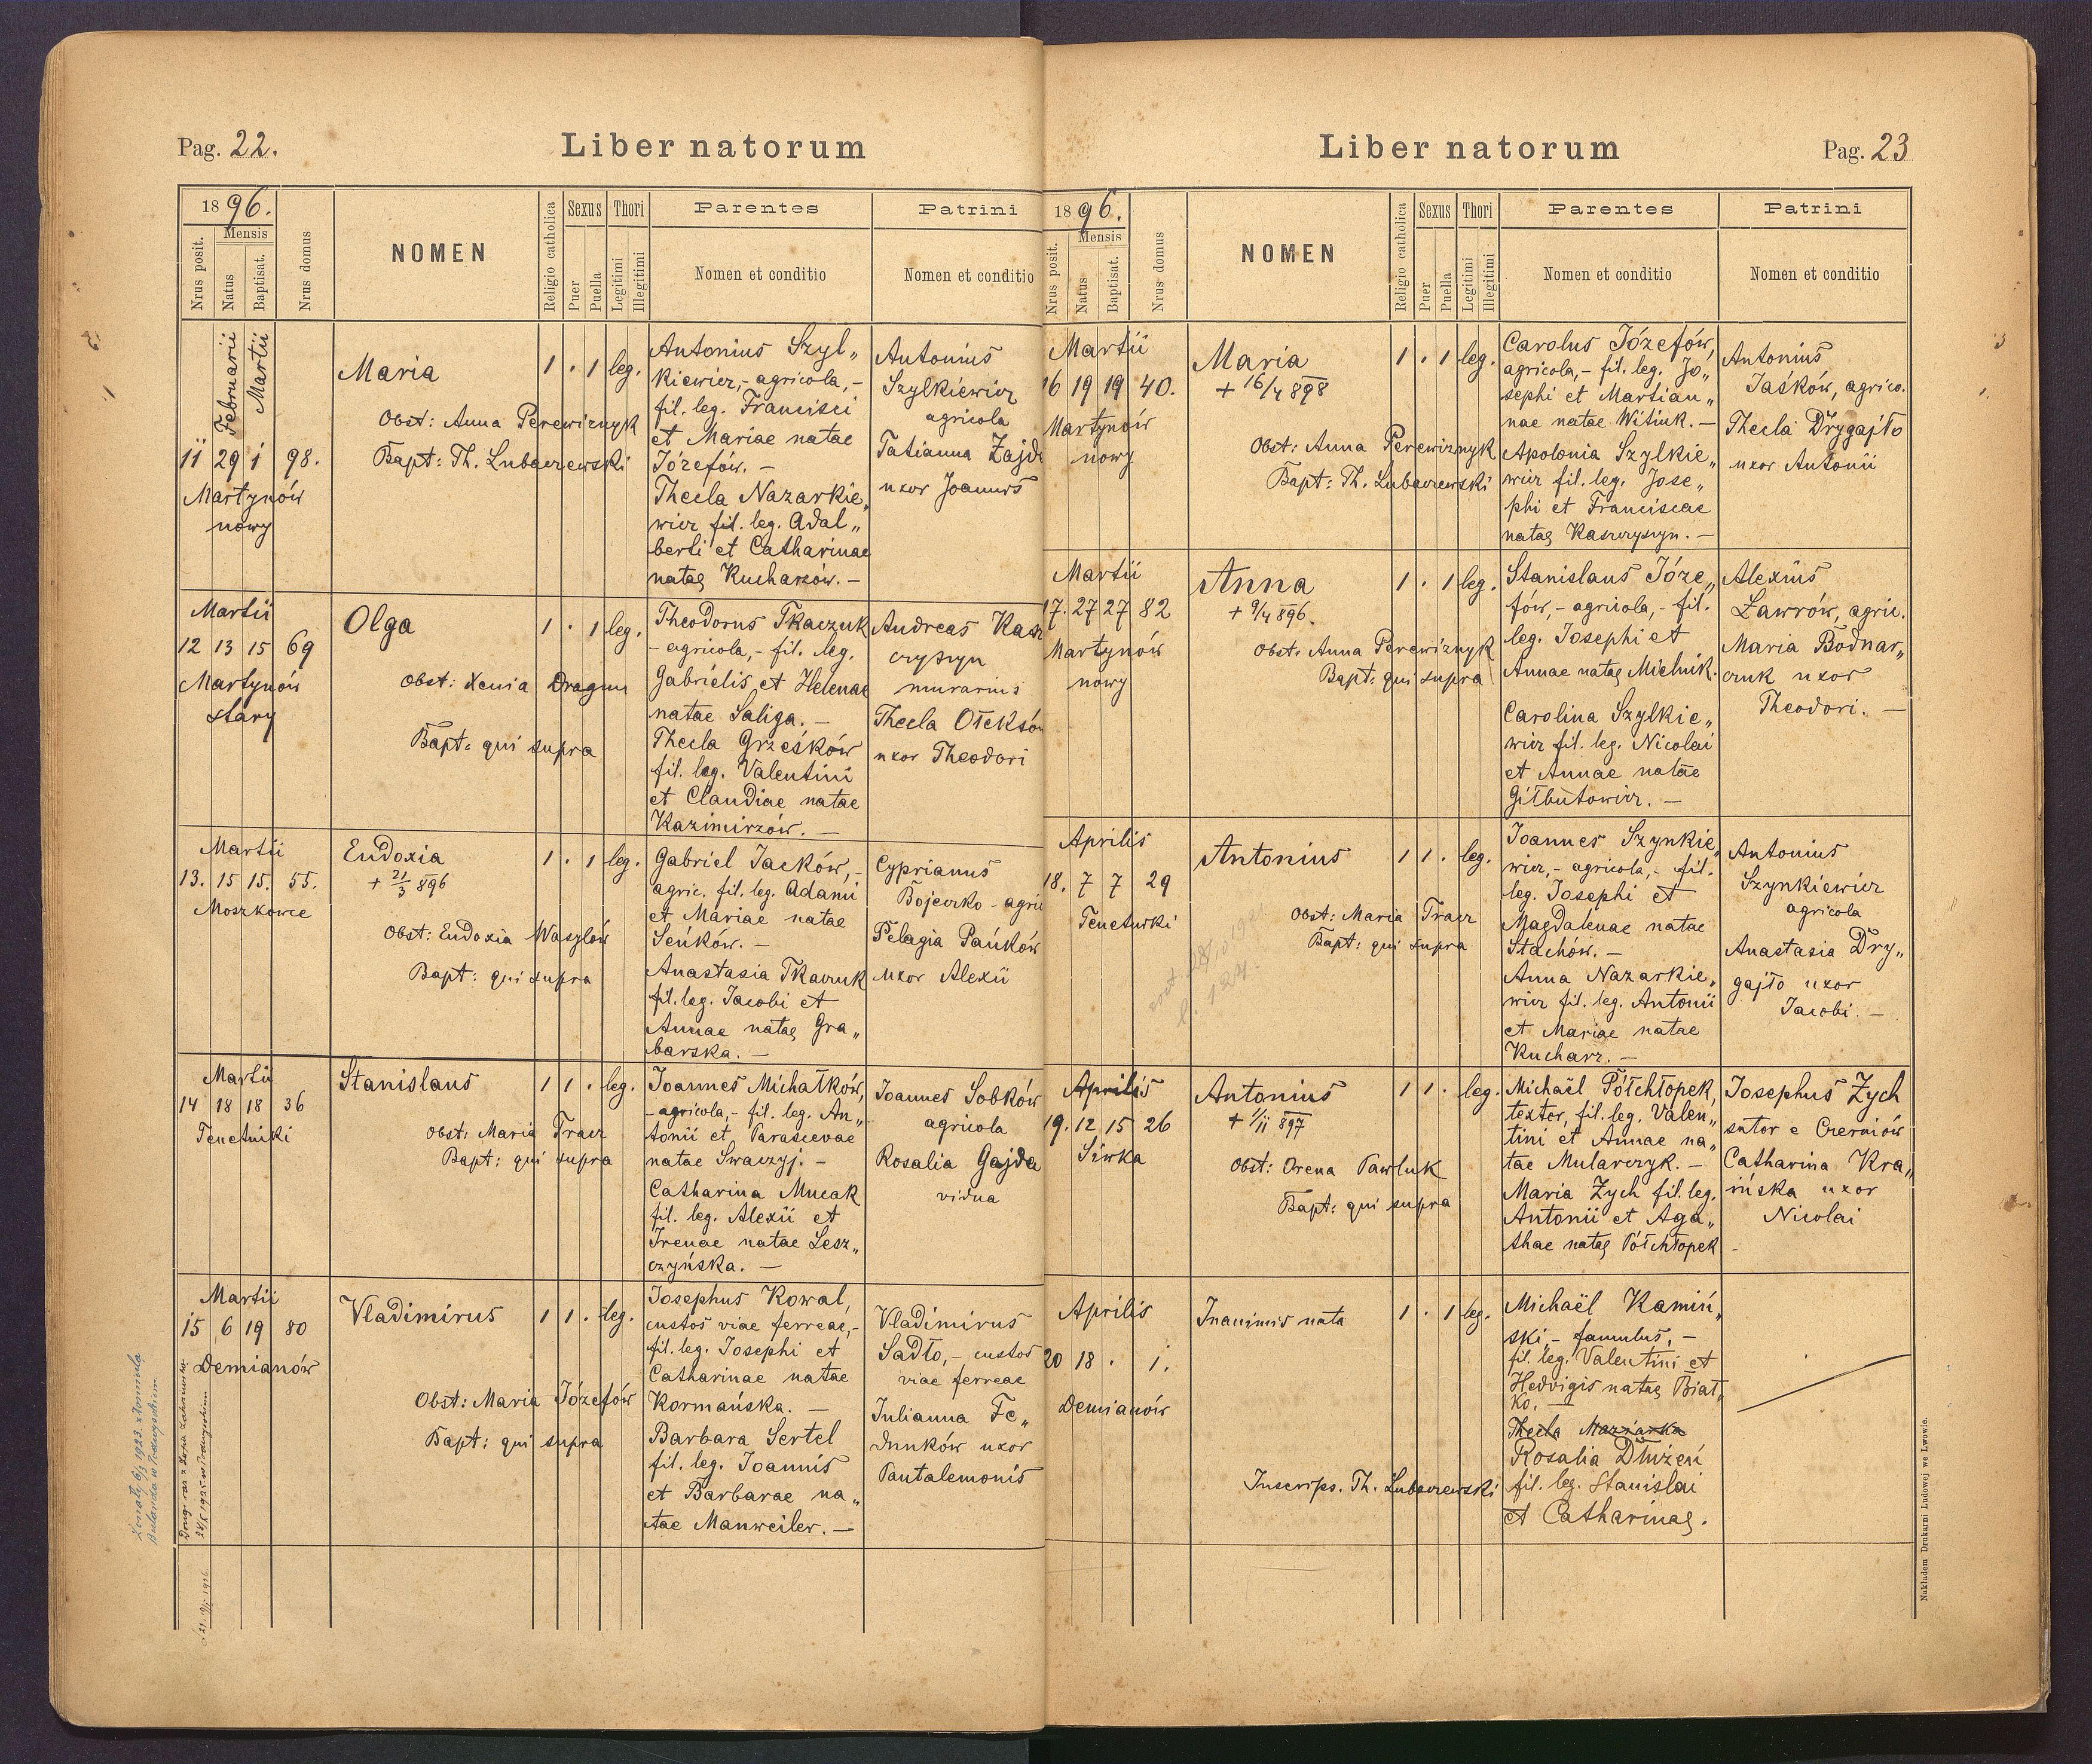 Pag. 22.
Liber natorum
1896.
Nrus posit.
Mensis
Natus
Baptisat.
Nrus domus
NOMEN
Religio catholica
Sexus
Puer
Puella
Thori
Legitimi
Illegitimi
Parentes
Nomen et conditio
Patrini
Nomen et conditio
Februarii
Martii
11 29 1 98.
Martynów
nowy
Maria
Obst: Anna Perewiznyk
Bapt: Th. Lubaczewski
1 . 1 leg.
Antonius Szyl„
kiewicz,- agricola,-
fil. leg. Francisci
et Mariae natae
Józefów. —
Thecla Nazarkie„
wicz fil. leg. Adal„
berti et Catharinae
natae Kucharzów. —
Antonius
Szylkiewicz
agricola
Tatianna Zajd
uxor Joannis
Martii
12 13 15 69
Martynów
stary
Olga
Obst: Xenia Dragun
Bapt: qui supra
1 . 1 leg.
Theodorus Tkaczuk
- agricola,- fil. leg.
Gabrielis et Helenae
natae Saliga. —
Thecla Grześków
fil. leg. Valentini
et Claudiae natae
Kazimirzów. —
Andreas Kasz
czyszyn
murarius
Thecla Ołeksów
uxor Theodori
Martii
13. 15 15. 55.
Moszkowce
Eudoxia
+ 21/3 896
Obst: Eudoxia Wasylów
Bapt: qui supra
1 . 1 leg.
Gabriel Jacków,-
agric. fil. leg. Adami
et Mariae natae
Seńków. —
Anastasia Tkaczuk
fil. leg. Jacobi et
Annae natae Gra„
barska. —
Cyprianus
Bojeczko - agric
Pelagia Pańków
uxor Alexii
Martii
14 18 18 36
Tenetniki
Stanislaus
Obst: Maria Tracz
Bapt: qui supra
1 1 . leg.
Joannes Michałków,
- agricola,- fil. leg. An„
tonii et Parascevae
natae Swaczyj. -
Catharina Mucak
fil. leg. Alexii et
Irenae natae Lesz„
czyńska. —
Joannes Sobków
agricola
Rosalia Gajda
vidua
Martii
15 6 19 80
Demianów
Vladimirus
Obst: Maria Józefów
Bapt: qui supra
1 1 . leg.
Josephus Kowal,
custos viae ferreae,-
fil. leg. Josephi et
Catharinae natae
Kormańska. —
Barbara Sertel
fil. leg. Joannis
et Barbarae na„
tae Manweiler. —
Vladimirus
Sadło,- custos
viae ferreae
Julianna Fe„
dunków uxor
Pantalemonis
Liber natorum
Pag. 23
1896.
Nrus posit.
Mensis
Natus
Baptisat.
Nrus domus
NOMEN
Religio catholica
Sexus
Puer
Puella
Thori
Legitimi
Illegitimi
Parentes
Nomen et conditio
Patrini
Nomen et conditio
Martii
16 19 19 40.
Martynów
nowy
Maria
+ 16/4 898
Obst: Anna Perewiznyk
Bapt: Th. Lubaczewski
1 . 1 leg.
Carolus Józefów,
agricola,- fil. leg. Jo„
sephi et Martian„
nae natae Witiuk. —
Apolonia Szylkie„
wicz fil. leg. Jose„
phi et Franciscae
natae Kaszczyszyn. —
Antonius
Jaśków, agrico.
Thecla Drygajło
uxor Antonii
Martii
17. 27 27 82
Martynów
nowy
Anna
+ 9/4 896.
Obst: Anna Perewiznyk
Bapt: qui supra
1 . 1 leg.
Stanislaus Józe„
fów,- agricola,- fil.
leg. Josephi et
Annae natae Mielnik.
Carolina Szylkie„
wicz fil. leg. Nicolai
et Annae natae
Giłbutowicz. —
Alexius
Ławrów, agric.
Maria Bodnar„
czuk uxor
Theodori. —
Aprilis
18. 7 7 29
Tenetniki
Antonius
Obst: Maria Tracz
Bapt: qui supra
1 1 . leg.
Joannes Szynkie„
wicz,- agricola,- fil.
leg. Josephi et
Magdalenae natae
Stachów. —
Anna Nazarkie„
wicz fil. leg. Antonii
et Mariae natae
Kucharz. —
Antonius
Szynkiewicz
agricola
Anastasia Dry„
gajło uxor
Jacobi. —
Aprilis
19. 12 15 26
Siwka
Antonius
+ 1/11 897
Obst: Orena Pawluk
Bapt: qui supra
1 1 . leg.
Michaël Półchłopek,
textor, fil. leg. Valen„
tini et Annae na„
tae Mularczyk. —
Maria Zych fil. leg.
Antonii et Aga„
thae natae Półchłopek
Josephus Zych
sutor e Czerniów
Catharina Kra„
ińska uxor
Nicolai
Aprilis
20 18 . 1.
Demianów
Inanimis nata
Inscrips. Th. Lubaczewski
1 . 1 leg.
Michaël Kamiń„
ski,- famulus, -
fil. leg. Valentini et
Hedvigis natae Biał„
ko. —
Thecla Maziarka
Rosalia Dłużeń
fil. leg. Stanislai
et Catharinae.
Nakładem Drukarni Ludowej we Lwowie.